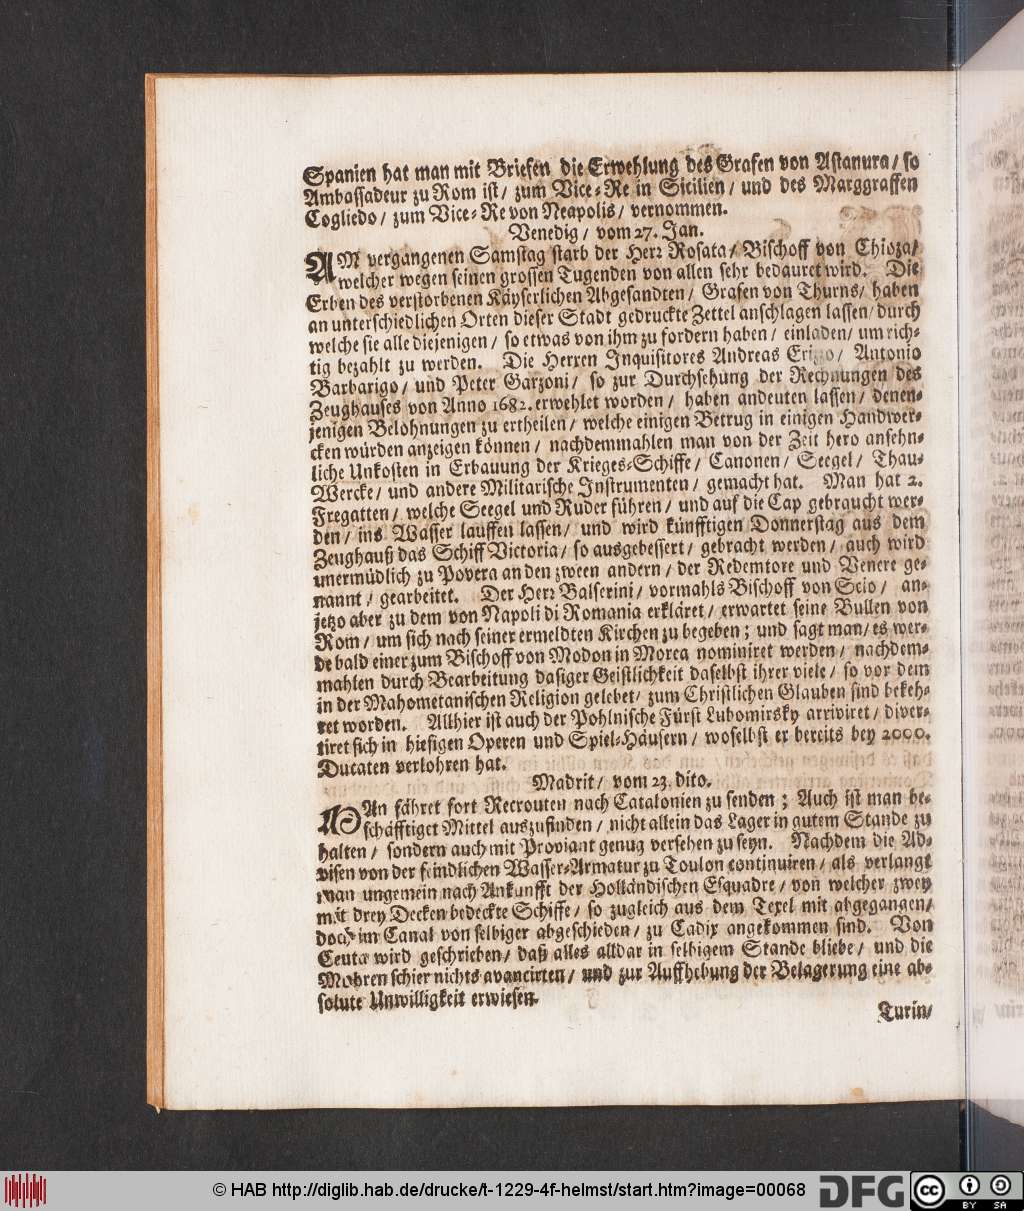 Spanien hat man mit Briefen die Erwehlung des Grafen von Astanura/ so
Ambassadeur zu Rom ist/ zum Vice-Re in Sicilien/ und des Marggraffen
Cogliedo/ zum Vice-Re von Neapolis/ vernommen.
Venedig/ vom 27. Jan.
AM vergangenen Samstag starb der Herr Rosata/ Bischoff von Chioza/
welcher wegen seinen grossen Tugenden von allen sehr bedauret wird. Die
Erben des verstorbenen Käyserlichen Abgesandten/ Grafen von Thurns/ haben
an unterschiedlichen Orten dieser Stadt gedruckte Zettel anschlagen lassen/ durch
welche sie alle diejenigen/ so etwas von ihm zu fordern haben/ einladen/ um rich-
tig bezahlt zu werden. Die Herren Inquisitores Andreas Erizzo/ Antonio
Barbarigo/ und Peter Garzoni/ so zur Durchsehung der Rechnungen des
Zeughauses von Anno 1682. erwehlet worden/ haben andeuten lassen/ denen-
jenigen Belohnungen zu ertheilen/ welche einigen Betrug in einigen Handwer-
cken würden anzeigen können/ nachdemmahlen man von der Zeit hero ansehn-
liche Unkosten in Erbauung der Krieges-Schiffe/ Canonen/ Seegel/ Thau-
Wercke/ und andere Militarische Instrumenten/ gemacht hat. Man hat 2.
Fregatten/ welche Seegel und Ruder führen/ und auf die Cap gebraucht wer-
den/ ins Wasser lauffen lassen/ und wird künfftigen Donnerstag aus dem
Zeughauß das Schiff Victoria/ so ausgebessert/ gebracht werden/ auch wird
unermüdlich zu Povera an den zween andern/ der Redemtore und Venere ge-
nannt/ gearbeitet. Der Herr Balserini/ vormahls Bischoff von Scio/ an-
jetzo aber zu dem von Napoli di Romania erkläret/ erwartet seine Bullen von
Rom/ um sich nach seiner ermeldten Kirchen zu begeben; und sagt man/ es wer-
de bald einer zum Bischoff von Modon in Morea nominiret werden/ nachdem-
mahlen durch Bearbeitung dasiger Geistlichkeit daselbst ihrer viele/ so vor dem
in der Mahometanischen Religion gelebet/ zum Christlichen Glauben sind bekeh-
ret worden. Allhier ist auch der Pohlnische Fürst Lubomirsky arriviret/ diver-
tiret sich in hiesigen Operen und Spiel-Häusern/ woselbst er bereits bey 2000.
Ducaten verlohren hat.
Madrit/ vom 23. dito.
MAn fähret fort Recrouten nach Catalonien zu senden; Auch ist man be-
schäfftiget Mittel auszufinden/ nicht allein das Lager in gutem Stande zu
halten/ sondern auch mit Proviant genug versehen zu seyn. Nachdem die Ad-
visen von der feindlichen Wasser-Armatur zu Toulon continuiren/ als verlangt
man ungemein nach Ankunfft der Holländischen Esquadre/ von welcher zwey
mit drey Decken bedeckte Schiffe/ so zugleich aus dem Texel mit abgegangen/
doch im Canal von selbiger abgeschieden/ zu Cadix angekommen sind. Von
Ceuta wird geschrieben/ daß alles alldar in selbigem Stande bliebe/ und die
Mohren schier nichts avancirten/ und zur Auffhebung der Belagerung eine ab-
solute Unwilligkeit erwiesen.
Turin/
© HAB http://diglib.hab.de/drucke/t-1229-4f-helmst/start.htm?image=00068
DFG
cc BY SA